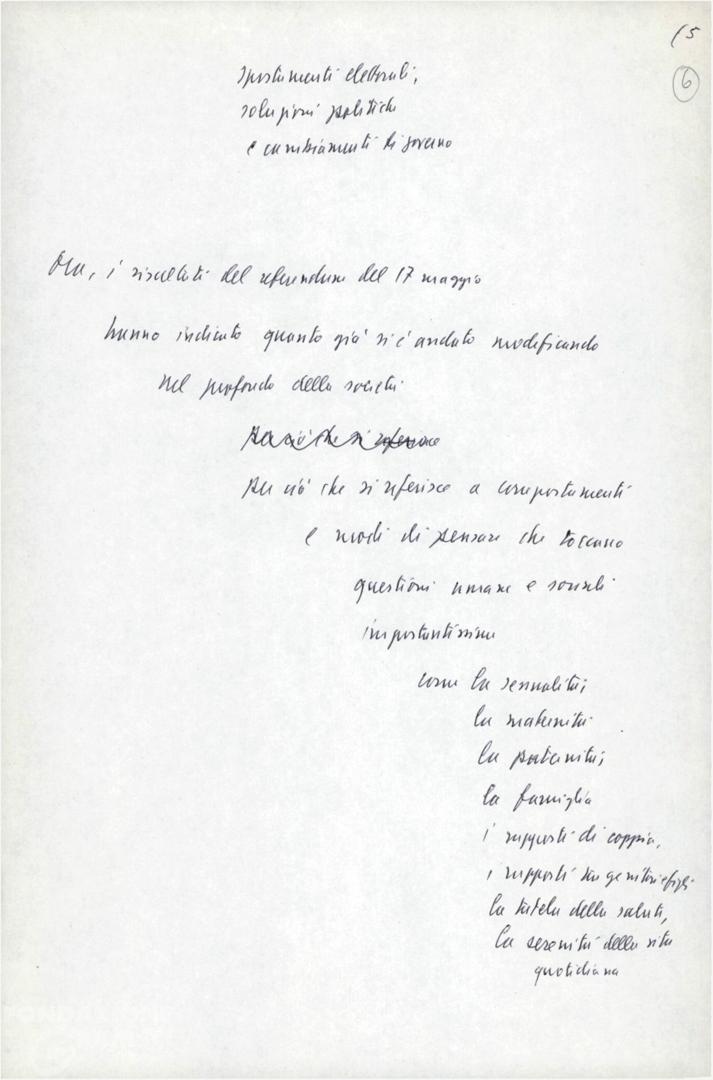 15
6
spostamenti elettorali,
soluzioni politiche
e cambiamenti di governo
Ora, i risultati del referendum del 17 maggio
hanno indicato quanto già si è andato modificando
nel profondo della società
Per ciò che si riferisce
Per ciò che si riferisce a comportamenti
e modi di pensare che toccano
questioni umane e sociali
importantissime
come la sessualità;
la maternità
la paternità;
la famiglia
i rapporti di coppia,
i rapporti tra genitori e figli
la tutela della salute,
la serenità della vita
quotidiana